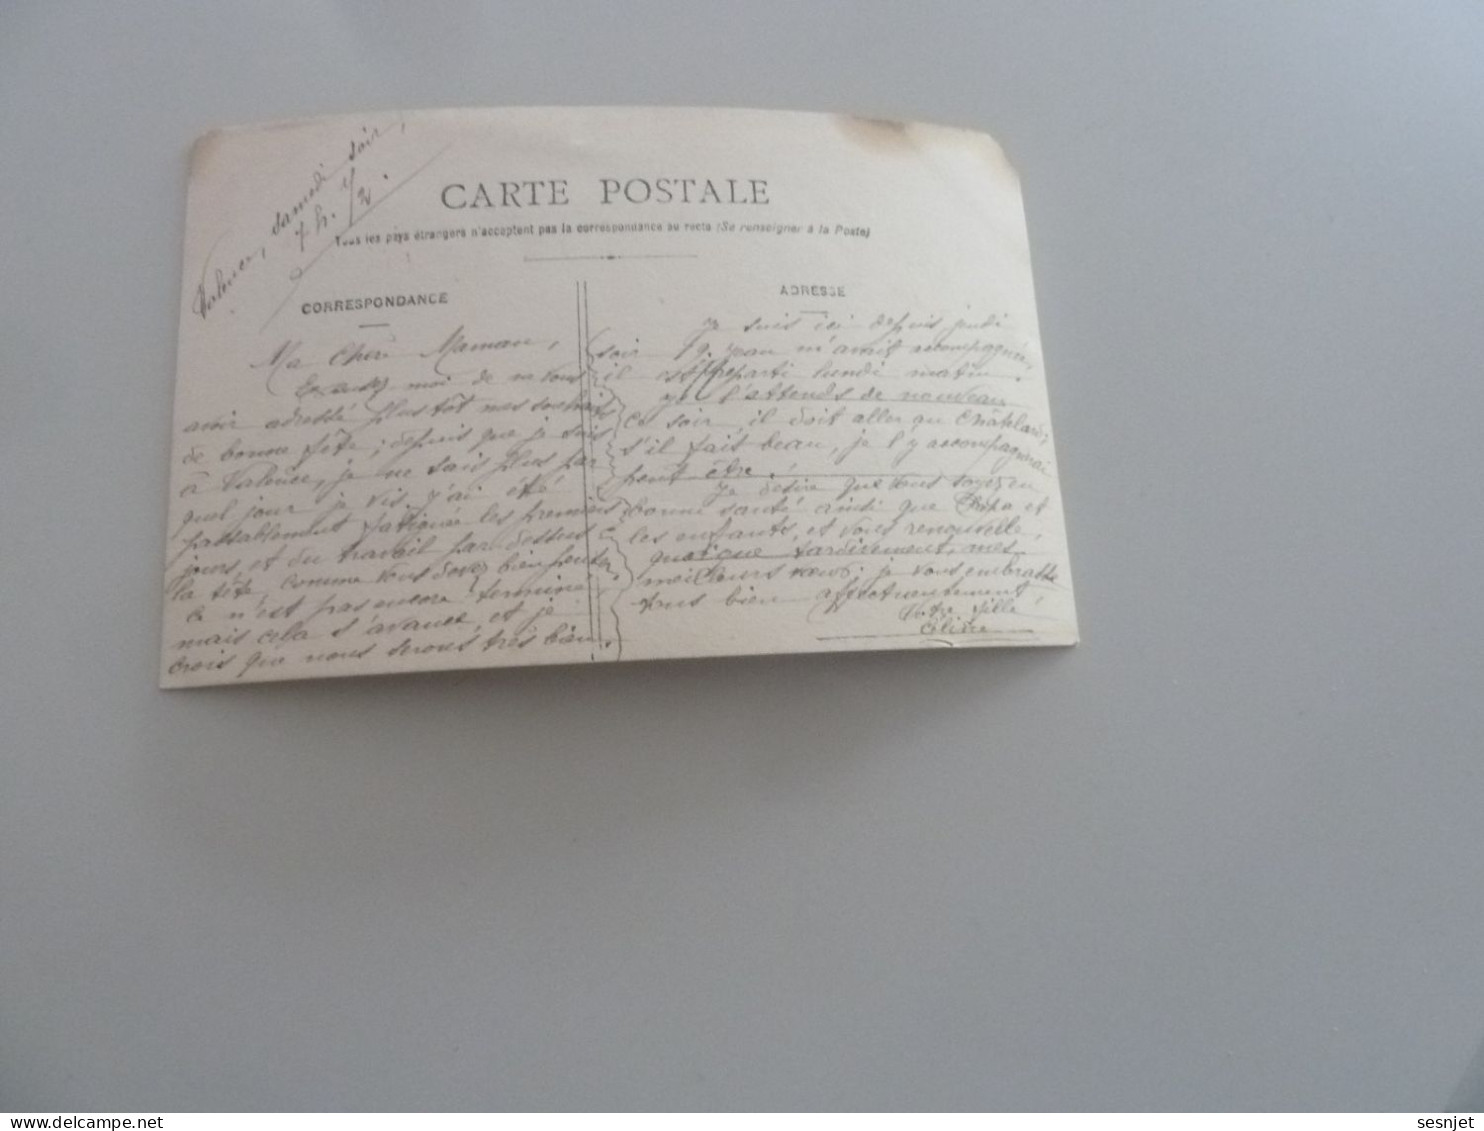 Valence, samedi soir,
7 h. 1/2.
CARTE POSTALE
Tous les pays étrangers n'acceptent pas la correspondance au recto (Se renseigner à la Poste)
CORRESPONDANCE
Ma Chère Maman,
Excusez moi de ne vous
avoir adressé plus tôt mes souhaits
de bonne fête; depuis que je suis
à Valence, je ne sais plus par
quel jour je vis, j'ai été
passablement fatiguée les premiers
jours, et du travail par dessus
la tête, comme vous devez bien penser
ce n'est pas encore terminé,
mais cela s'avance, et je
crois que nous serons très bien.
ADRESSE
Je suis ici depuis jeudi
soir 19. Jean m'avait accompagnée,
il est reparti lundi matin.
Je l'attends de nouveau
ce soir, il doit aller au Châtelard,
s'il fait beau, je l'y accompagnerai
peut être.
Je désire que vous soyez en
bonne santé ainsi que Papa et
les enfants, et vous renouvelle,
quoique tardivement, mes
meilleurs vœux; je vous embrasse
tous bien affectueusement,
Votre fille